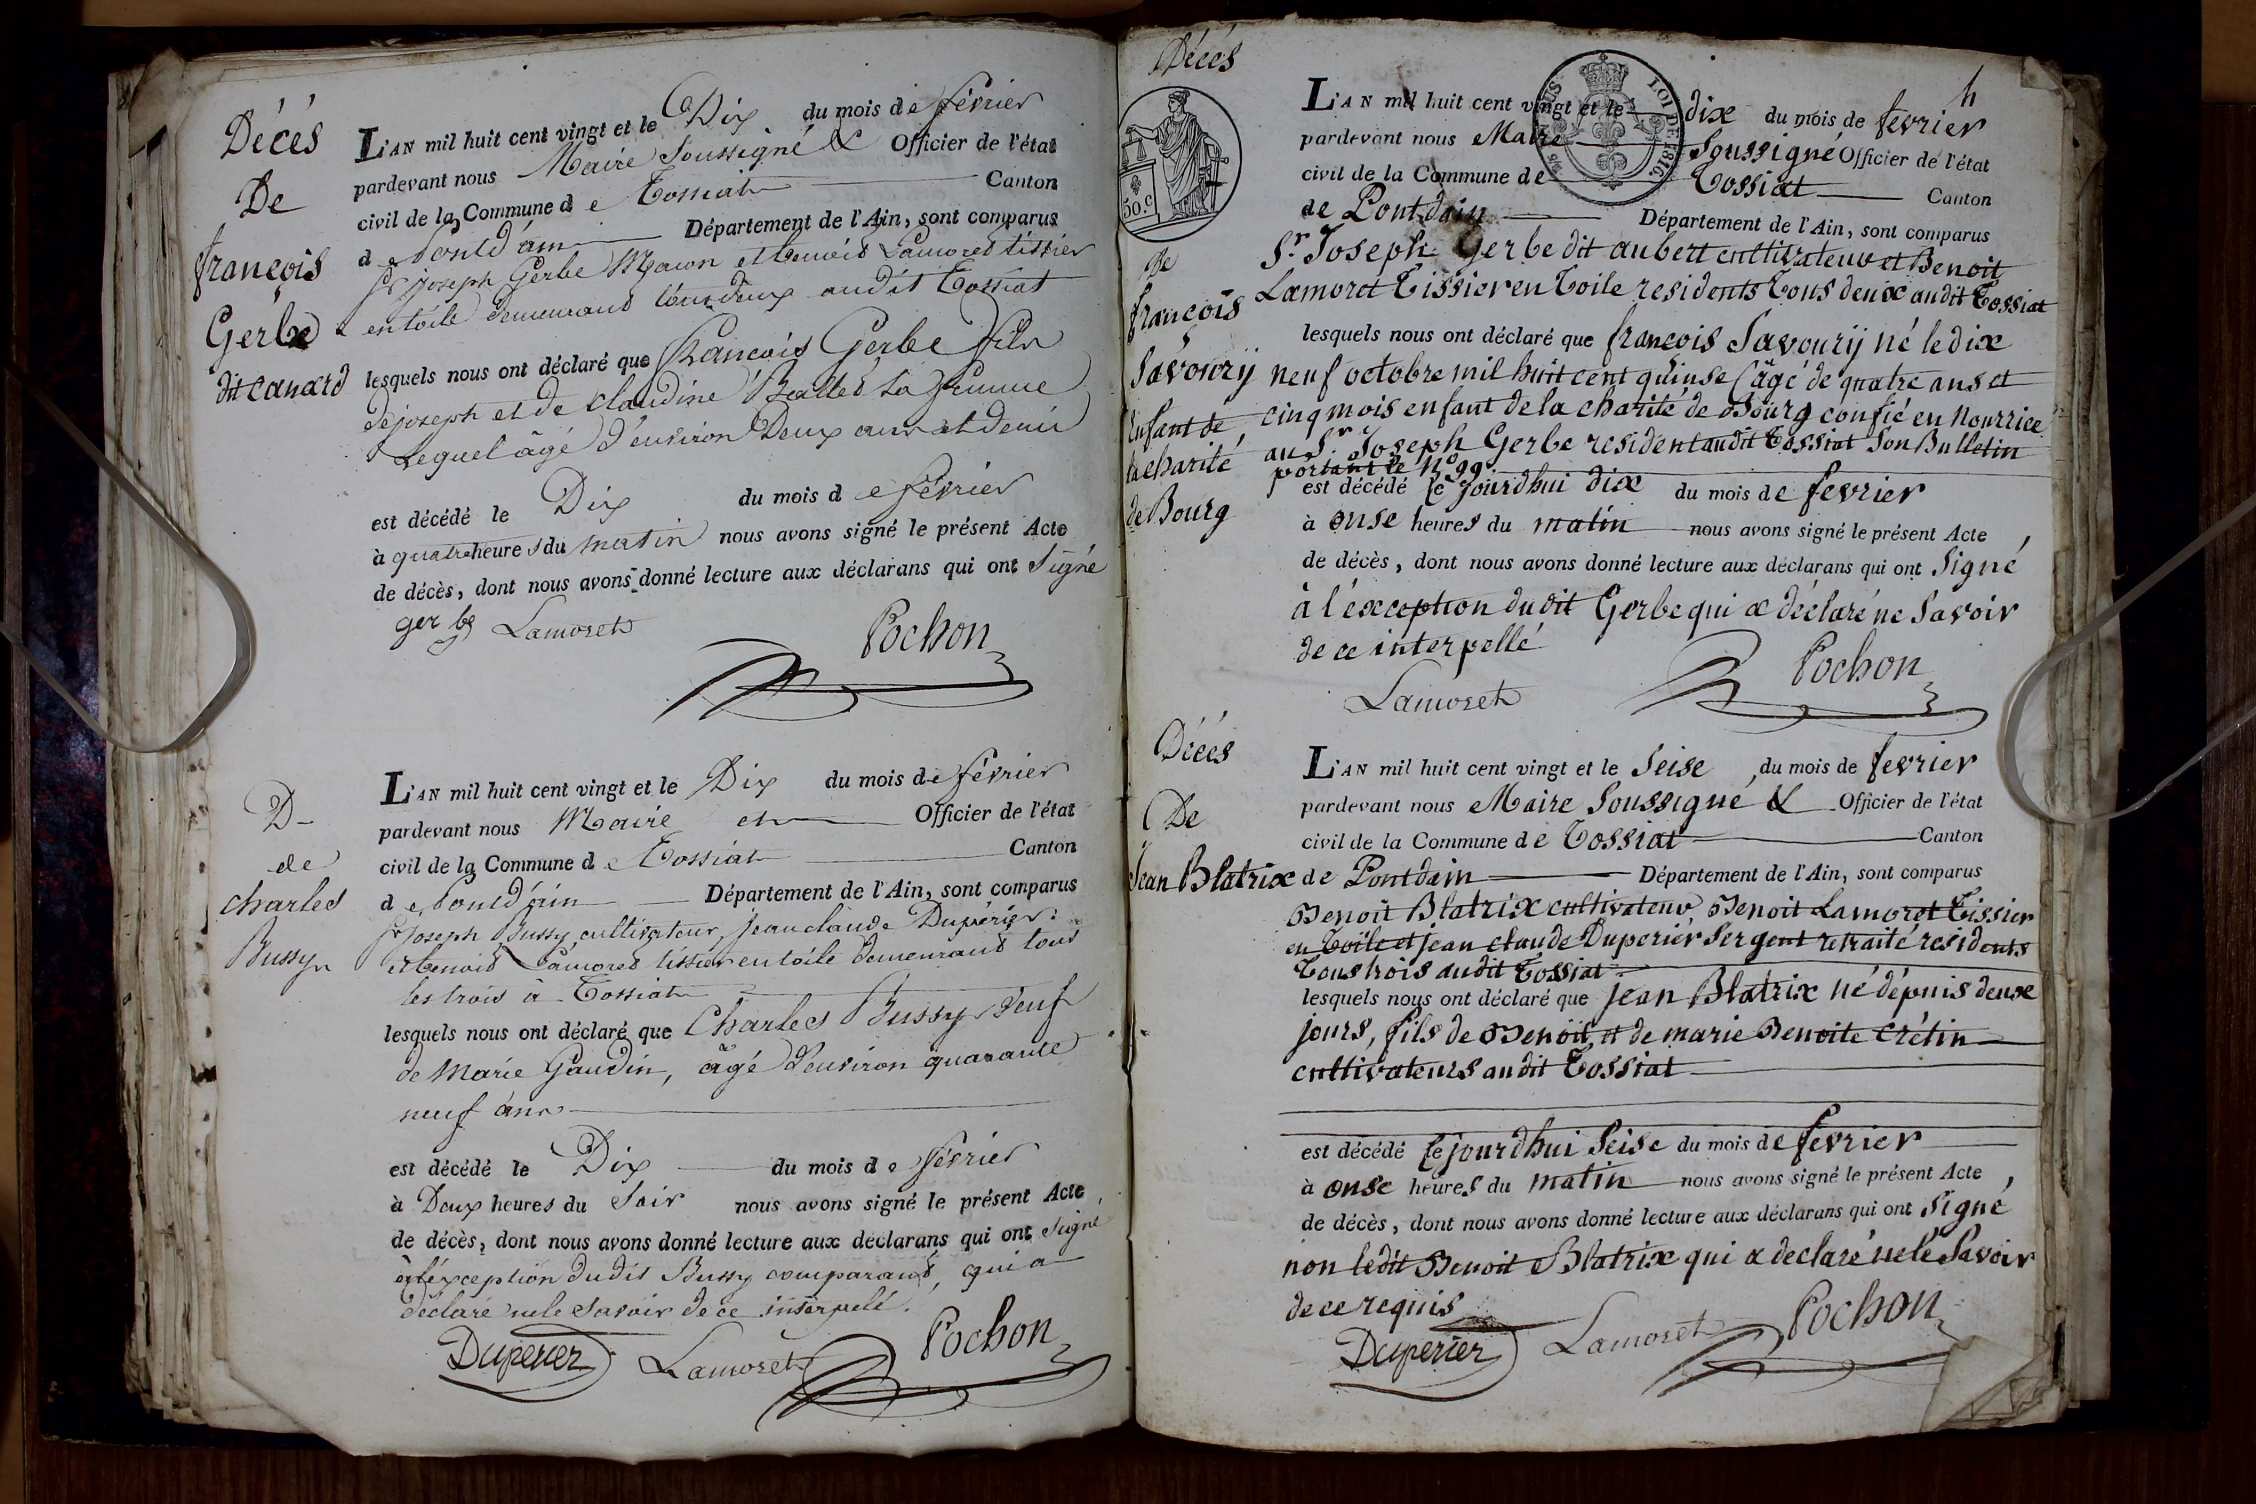 Décés
De
françois
Gerbe
dit canard
L'AN mil huit cent vingt et le Dix du mois de février
pardevant nous Maire Soussigné & Officier de l'état
civil de la Commune de Tossiat Canton
de Pontd'ain Département de l'Ain, sont comparus
Sr joseph Gerbe Maçon et benoid Lamoret tissier
en toile demeurant tous deux audit Tossiat
lesquels nous ont déclaré que francois Gerbe fils
de joseph et de claudine Ballet sa femme
Lequel âgé d'environ Deux ans et demi
est décédé le Dix du mois de février
à quatre heures du matin nous avons signé le présent Acte
de décès, dont nous avons donné lecture aux déclarans qui ont Signé
gerbe Lamoret
Pochon
D
de
charles
Bussy
L'AN mil huit cent vingt et le Dix du mois de février
pardevant nous Maire Officier de l'état
civil de la Commune de Tossiat Canton
de Pontd'ain Département de l'Ain, sont comparus
Sr joseph Bussy cultivateur, jean claude Dupérier
et benoid Lamoret tissier en toile demeurant tous
les trois à Tossiat
lesquels nous ont déclaré que Charles Bussy veuf
de Marie Gaudin, âgé d'environ quarante
neuf ans
est décédé le Dix du mois de février
à Deux heures du Soir nous avons signé le présent Acte
de décès, dont nous avons donné lecture aux déclarans qui ont Signé
à l'éxception dudit Bussy comparant, qui a
déclaré ne le savoir de ce interpelé.
Duperier Lamoret Pochon
Décés
50.c
LOI DE 1816.
4
de
francois
Savourÿ
Enfant de
la charité
de Bourg
L'AN mil huit cent vingt et le dix du mois de fevrier
pardevant nous Maire Soussigné Officier de l'état
civil de la Commune de Tossiat Canton
de Pontdain Département de l'Ain, sont comparus
Sr Joseph Gerbe dit aubert cultivateur et Benoit
Lamoret Tissier en Toile residents Tous deux audit Tossiat
lesquels nous ont déclaré que françois Savourÿ né le dix
neuf octobre mil huit cent quinse (âgé de quatre ans et
cinq mois enfant de la charité de Bourg confié en Nourrice
au Sr Joseph Gerbe resident audit Tossiat Son Bulletin
portant le No 99
est décédé Cejourdhui dix du mois de fevrier
à onse heures du matin nous avons signé le présent Acte
de décès, dont nous avons donné lecture aux déclarans qui ont Signé
à l'éxception dudit Gerbe qui a déclaré ne Savoir
de ce interpellé
Lamoret Pochon
Décés
De
Jean Blatrix
L'AN mil huit cent vingt et le Seise du mois de fevrier
pardevant nous Maire Soussigné & Officier de l'état
civil de la Commune de Tossiat Canton
de Pontdain Département de l'Ain, sont comparus
Benoit Blatrix cultivateur, Benoit Lamoret Tissier
en Toile et jean claude Duperier Sergent retraité residents
Tous trois audit Tossiat
lesquels nous ont déclaré que jean Blatrix né dépuis deux
jours, fils de Benoit et de marie Benoite Crétin
cultivateurs audit Tossiat
est décédé Cejourdhui Seise du mois de fevrier
à onse heures du matin nous avons signé le présent Acte
de décès, dont nous avons donné lecture aux déclarans qui ont Signé
non ledit Benoit Blatrix qui a declaré ne le Savoir
de ce requis
Duperier Lamoret Pochon